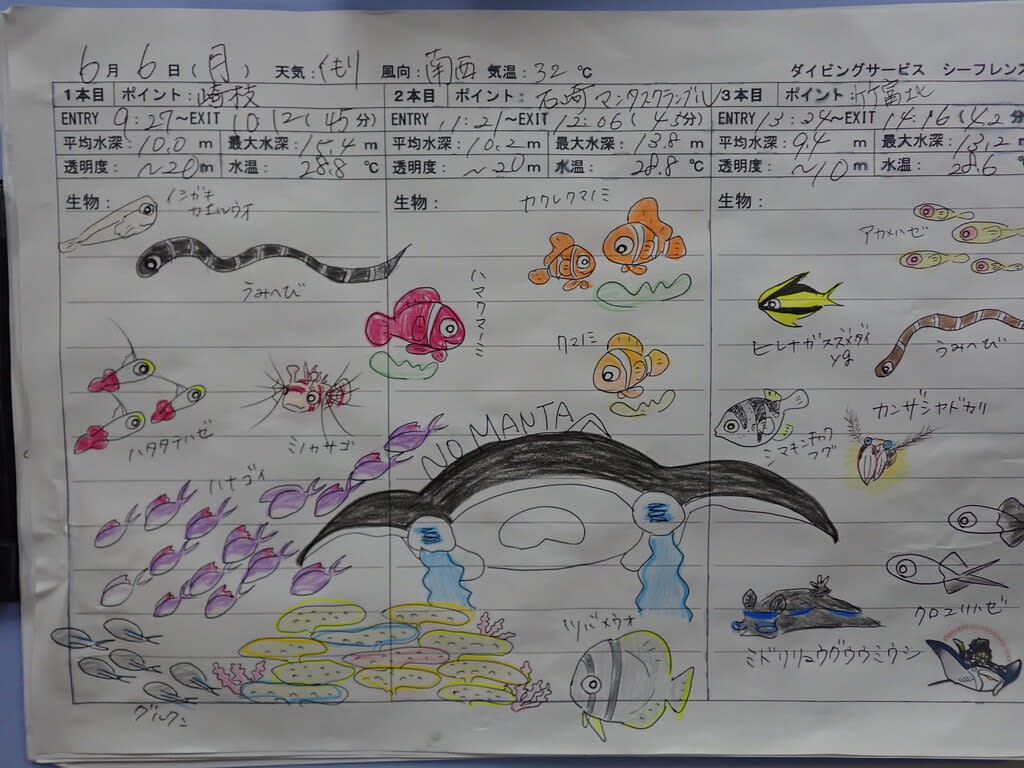 6月 6日(月) 天気:くもり 風向:南西 気温:32℃ ダイビングサービス シーフレンズ
1本目 ポイント:崎枝
ENTRY 9:27~EXIT 10:12(45分)
平均水深: 10.0 m 最大水深: 15.4 m
透明度: ~20m 水温: 28.8 ℃
生物:
イシガキ
カエルウオ
うみへび
ハタタテハゼ
ミノカサゴ
ハナゴイ
グルクン
2本目 ポイント: 石崎マンタスクランブル
ENTRY 11:21~EXIT 12:06(45分)
平均水深: 10.2 m 最大水深: 13.8 m
透明度: ~20m 水温: 28.8 ℃
生物:
カクレクマノミ
ハマクマノミ
クマノミ
NO MANTA
ツバメウオ
3本目 ポイント 竹富北
ENTRY 13:34~EXIT 14:16(42分
平均水深: 9.4 m 最大水深: 13.2 m
透明度: ~10m 水温: 28.6
生物:
アカメハゼ
ヒレナガスズメダイ
yg
うみへび
カンザシヤドカリ
シマキンチャク
フグ
クロユリハゼ
ミドリリュウグウウミウシ